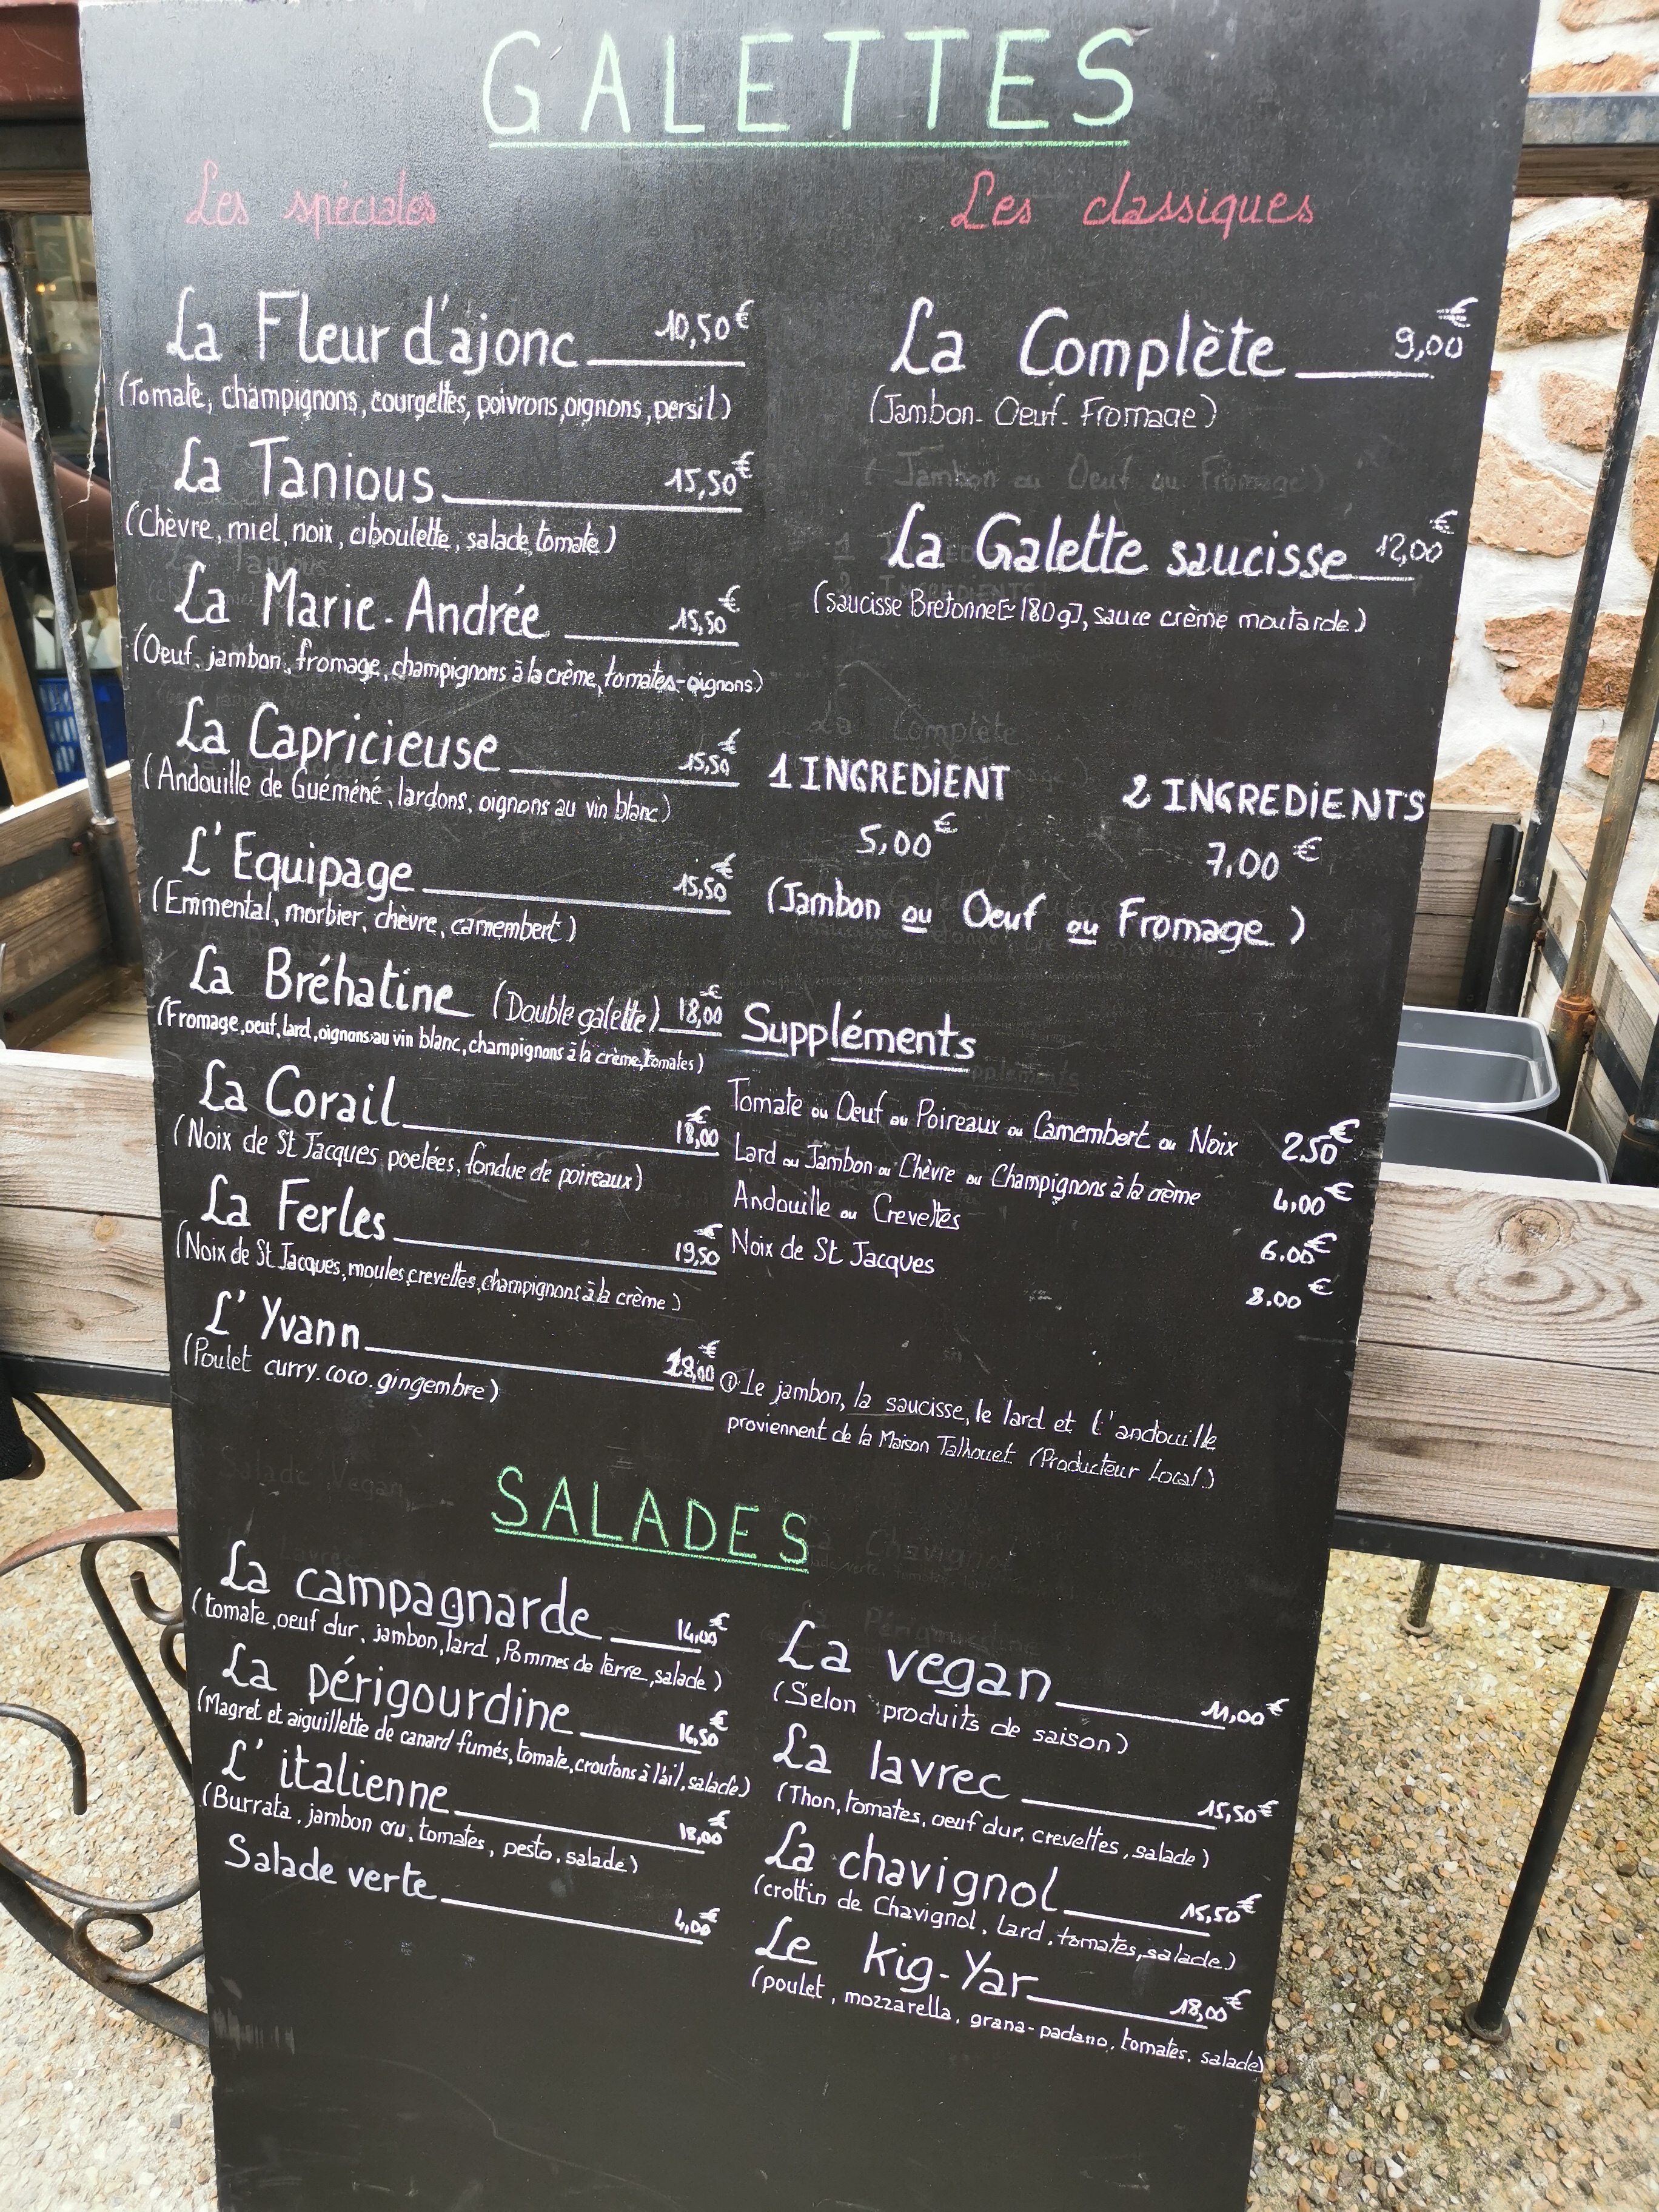 GALETTES
Les spéciales
La Fleur d'ajonc 10,50€
(Tomate, champignons, courgettes, poivrons, oignons, persil)
La Tanious 15,50€
(Chèvre, miel, noix, ciboulette, salade, tomate)
La Marie-Andrée 15,50€
(Oeuf, jambon, fromage, champignons à la crème, tomates-oignons)
La Capricieuse 15,50€
(Andouille de Guéméné, lardons, oignons au vin blanc)
L'Equipage 15,50€
(Emmental, morbier, chèvre, camembert)
La Bréhatine (Double galette) 18,00€
(Fromage, oeuf, lard, oignons au vin blanc, champignons à la crème, tomates)
La Corail 18,00€
(Noix de St Jacques poelées, fondue de poireaux)
La Ferles 19,50€
(Noix de St Jacques, moules, crevettes, champignons à la crème)
L'Yvann 18,00€
(Poulet curry. coco. gingembre)
Les classiques
La Complète 9,00€
(Jambon. Oeuf. Fromage)
(Jambon ou Oeuf ou Fromage)
La Galette saucisse 12,00€
(saucisse Bretonne [≃180g], sauce crème moutarde)
1 INGREDIENT 2 INGREDIENTS
5,00€ 7,00€
(Jambon ou Oeuf ou Fromage)
Suppléments
Tomate ou Oeuf ou Poireaux ou Camembert ou Noix 2.50€
Lard ou Jambon ou Chèvre ou Champignons à la crème 4,00€
Andouille ou Crevettes 6.00€
Noix de St Jacques 8.00€
ⓘ Le jambon, la saucisse, le lard et l'andouille
proviennent de la Maison Talhouet (Producteur Local)
SALADES
La campagnarde 14,00€
(tomate, oeuf dur, jambon, lard, Pommes de terre, salade)
La périgourdine 16,50€
(Magret et aiguillette de canard fumés, tomate, croutons à l'ail, salade)
L'italienne 18,00€
(Burrata, jambon cru, tomates, pesto, salade)
Salade verte 4,00€
La vegan 11,00€
(Selon produits de saison)
La lavrec 15,50€
(Thon, tomates, oeuf dur, crevettes, salade)
La chavignol 15,50€
(crottin de Chavignol, lard, tomates, salade)
Le Kig-Yar 18,00€
(poulet, mozzarella, grana-padano, tomates, salade)